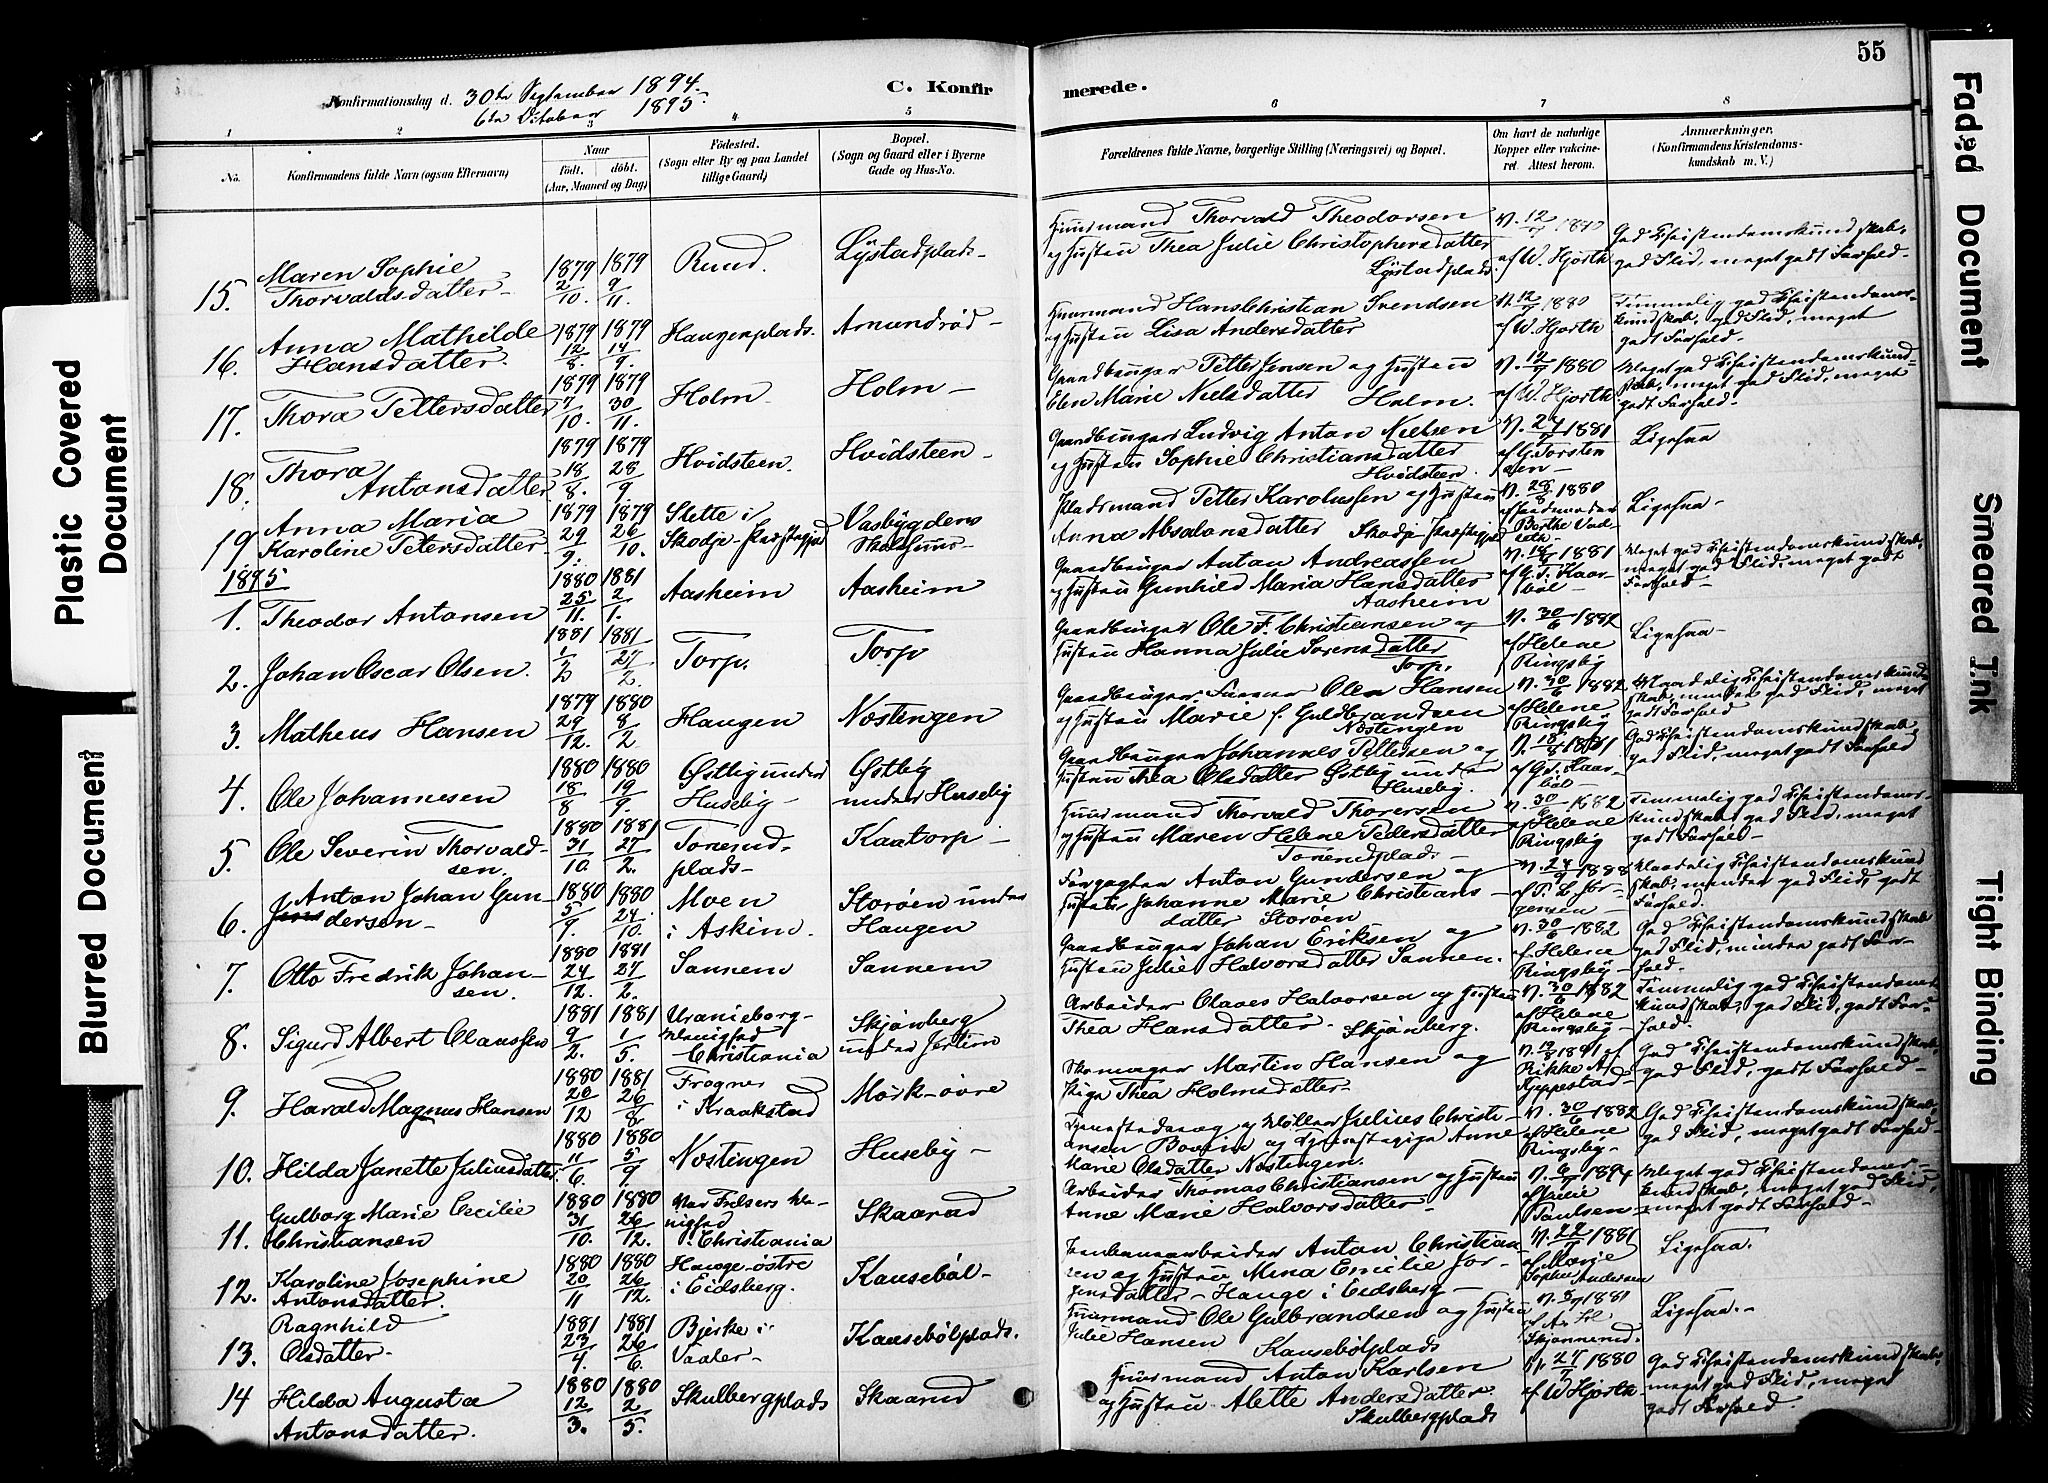 55
Konfirmationsdag d. 30te September 1894.
6te October 1895.
C. Konfirmerede.
1 2 3 4 5 6 7 8
No. Konfirmandens fulde Navn (ogsaa Efternavn) Naar födt. döbt. (Aar, Maaned og Dag) Födested. (Sogn eller By og paa Landet tillige Gaard) Bopæl. (Sogn og Gaard eller i Byerne Gade og Hus-No. Forældrenes fulde Navne, borgerlige Stilling (Næringsvei) og Bopæl. Om havt de naturlige Kopper eller vakcineret. Attest herom. Anmærkninger. (Konfirmandens Kristendomskundskab m. V.)
15. Maren Sophie Thorvaldsdatter 1879 2/10. 1879 9/11. Rud. Lystadplads Huusmand Thorvald Theodorsen og Hustru Thea Julie Christophersdatter Lystadplads. af W. Hjorth God Christendomskundskab, god Flid, meget godt Forhold
16. Anna Mathilde Hansdatter. 1879 12/8. 1879 14/9. Haugenplads. Amundrød Huusmand Hans Christian Svendsen og Hustru Lisa Andersdatter V. 12/7 1880 af W. Hjorth Temmelig god Christendomskundskab, god Flid, meget godt Forhold.
17. Thora Pettersdatter 1879 7/10. 1879 30/11. Holm Holm Gaardbruger Petter Jensen og Hustru Elen Marie Nielsdatter Holm. V. 12/7 1880 af W. Hjorth Meget god Christendomskundskab, meget god Flid, meget godt Forhold.
18. Thora Antonsdatter 1879 18/8. 1879 28/9 Hvidsteen. Hvidsteen Gaardbruger Ludvig Anton Nielsen og Hustru Sophie Christiansdatter Hvidsteen. af G. Torstensen Ligesaa
19. Anna Maria Karoline Petersdatter 1879 29/9. 1879 26/10. Slette i Skodje Præstegjeld Vasbygdens Skolehuus Pladsmand Petter Karolussen og Hustru Anna Absalonsdatter Skodje Præstegjeld V. 28/8 1880 Ligesaa
1895
1. Theodor Antonsen 1880 25/11. 1881 2/1. Aasheim Aasheim Gaardbruger Anton Andreassen og Hustru Gunhild Maria Hansdatter Aasheim Meget god Christendomskundskab, meget god Flid, meget godt Forhold
2. Johan Oscar Olsen. 1881 1/2 1881 27/2. Torp. Torp Gaardbruger Ole F. Christiansen og Hustru Hanna Julie Sørensdatter Torp. V. 30/6 1882 af Helene Ringsby Ligesaa
3. Matheus Hansen 1879 29/12. 1880 8/2 Haugen Nostingen Olea Hansen og Hustru Marie f. Guldbrandsen Nostingen V. 30/6 1882 af Helene Ringsby Maadelig Christendomskundskab, mindre god Flid, meget godt Forhold
4. Ole Johannesen 1880 18/8 1880 19/9. Østby under Huseby Østby under Huseby Gaardbruger Johannes Pettersen og Hustru Thea Olsdatter Østby under Huseby. God Christendomskundskab, god Flid, meget godt Forhold
5. Ole Severin Thorvaldsen. 1880 31/10. 1881 27/2. Tonerudplads Kaatorp Huusmand Thorvald Thorersen og Hustru Maren Helene Pedersdatter Tonerudplads V. 30/6 1882 af Helene Ringsby Temmelig god Christendomskundskab, god Flid, meget godt Forhold
6. Anton Johan Gundersen 1880 5/9. 1880 24/10. Moen i Askim. Storøen under Haugen Forpagter Anton Gundersen og Hustru Johanne Marie Christiansdatter Storøen V. 24/9 1888 Maadelig Christendomskundskab, mindre god Flid, godt Forhold.
7. Otto Fredrik Johansen. 1880 24/12. 1881 27/2. Sannem Sannem Gaardbruger Johan Eriksen og Hustru Julie Halvorsdatter Sannem. V. 30/6 1882 af Helene Ringsby God Christendomskundskab god Flid, mindre godt Forhold.
8. Sigurd Albert Olaussen 1881 9/2. 1881 1/5. Uranieborg Menighed Christiania Skjønberg under Arbeider Olaves Halvorsen og Hustru Thea Hansdatter Skjønberg. V. 30/6 1882 af Helene Ringsby Temmelig god Christendomskundskab, god Flid, godt Forhold.
9. Harald Magnus Hansen 1880 20/12 1881 26/8 Frogner i Kraakstad Mørk-øvre Skomager Martin Hansen og Pige Thea Holmsdatter God Christendomskundskab, god Flid, godt Forhold
10. Hilda Janette Juliusdatter 1880 11/6. 1880 5/9. Nostingen Huseby Julius Christiansen og Tjenestepige Anne Marie Olsdatter Nostingen. V. 30/6 1882 af Helene Ringsby God Christendomskundskab, god Flid, meget godt Forhold
11. Gulborg Marie Cecilie Christiansen 1880 31/10. 1880 26/12. Vor Frelsers Menighed Christiania Skaarud Arbeider Thomas Christiansen og Hustru Anne Marie Halvorsdatter Paulsen Meget god Christendomskundskab, meget god Flid, meget godt Forhold
12. Karoline Josephine Antonsdatter. 1880 20/11 1880 26/12. Hauge-østre i Eidsberg. Kausebøl Jernbanearbeider Anton Christiansen og Hustru Mina Emilie Jorgensdatter Hauge i Eidsberg V. 22/7 1881 af Marie Sophie Andersen Ligesaa.
13. Ragnhild Olsdatter 1881 23/4. 1881 26/6. Bjerke i Vaaler Kausebølplads. Huusmand Ole Gulbrandsen og Hustru Julie Hansen Kausebølplads Ligesaa.
14 Hilda Augusta Antonsdatter. 1880 12/3. 1880 2/5. Skulbergplads Skaarud Huusmand Anton Karlsen og Hustru Alette Andersdatter Skulbergplads V. 27/7 1880 af W Hjorth God Christendomskundskab, meget god Flid, meget godt Forhold.
Plastic Covered Document
Blurred Document
Faded Document
Smeared Ink
Tight Binding